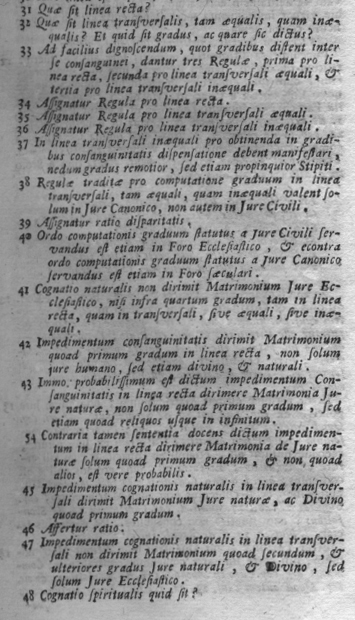 31 Quæ sit linea recta?
32 Quæ sit linea transversalis, tam æqualis, quam inæ-
qualis? Et quid sit gradus, ac quare sic dictus?
33 Ad facilius dignoscendum, quot gradibus distent inter
se consanguinei, dantur tres Regulæ, prima pro li-
nea recta, secunda pro linea transversali æquali, &
tertia pro linea transversali inæquali.
34 Assignatur Regula pro linea recta.
35 Assignatur Regula pro linea transversali æquali.
36 Assignatur Regula pro linea transversali inæquali.
37 In linea transversali inæquali pro obtinenda in gradi-
bus consanguinitatis dispensatione debent manifestari,
nedum gradus remotior, sed etiam propinquior Stipiti.
38 Regulæ traditæ pro computatione graduum in linea
transversali, tam æquali, quam inæquali valent so-
lum in Jure Canonico, non autem in Jure Civili.
39 Assignatur ratio disparitatis.
40 Ordo computationis graduum statutus a Jure Civili ser-
vandus est etiam in Foro Ecclesiastico, & econtra
ordo computationis graduum statutus a Jure Canonico
servandus est etiam in Foro sæculari.
41 Cognatio naturalis non dirimit Matrimonium Jure Ec-
clesiastico, nisi infra quartum gradum, tam in linea
recta, quam in transversali, sive æquali, sive inæ-
quali.
42 Impedimentum consanguinitatis dirimit Matrimonium
quoad primum gradum in linea recta, non solum
jure humano, sed etiam divino, & naturali.
43 Immo probabilissimum est dictum impedimentum Con-
sanguinitatis in linea recta dirimere Matrimonia Ju-
re naturæ, non solum quoad primum gradum, sed
etiam quoad reliquos usque in infinitum.
54 Contraria tamen sententia docens dictum impedimen-
tum in linea recta dirimere Matrimonia de Jure na-
turæ solum quoad primum gradum, & non quoad
alios, est vere probabilis.
45 Impedimentum cognationis naturalis in linea transver-
sali dirimit Matrimonium Jure naturæ, ac Divino
quoad primum gradum.
46 Affertur ratio.
47 Impedimentum cognationis naturalis in linea transver-
sali non dirimit Matrimonium quoad secundum, &
ulteriores gradus Jure naturali, & Divino, sed
solum Jure Ecclesiastico.
48 Cognatio spiritualis quid sit?